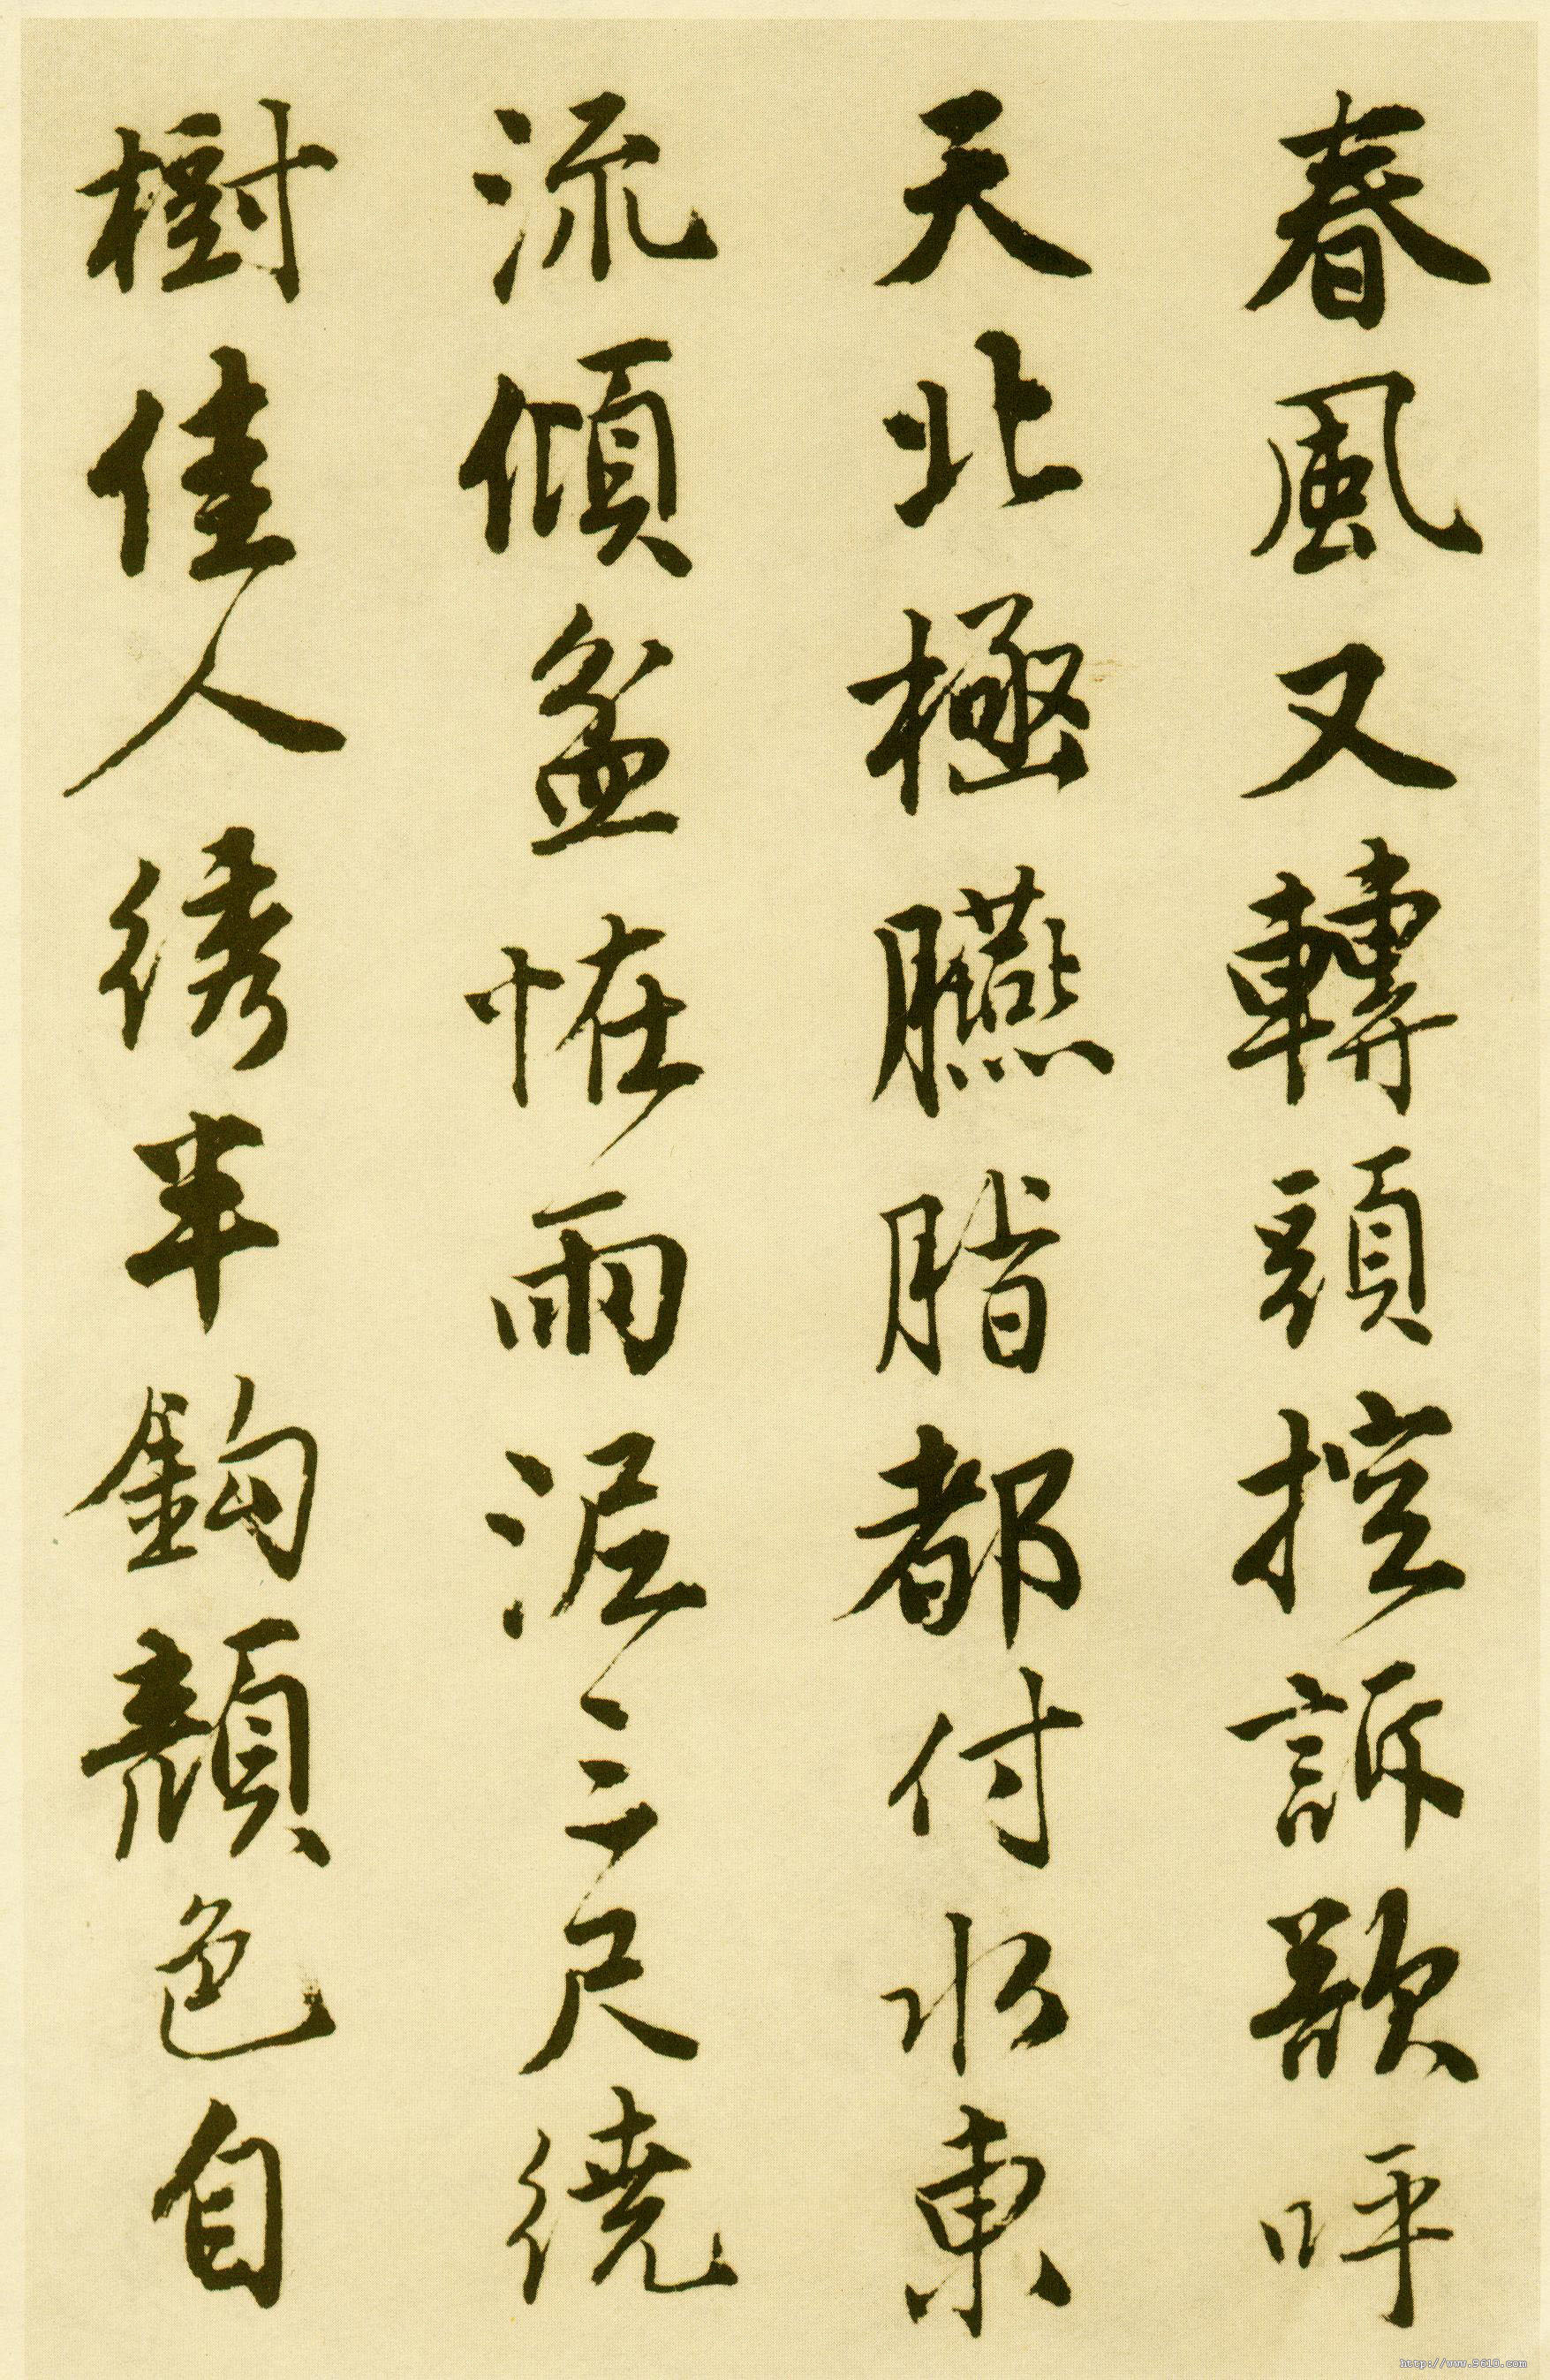 春風又轉頭控訴欲呼
天北極臙脂都付水東
流傾盆恠雨泥三尺繞
樹佳人綉半鈎顏色自
http://www.9610.com